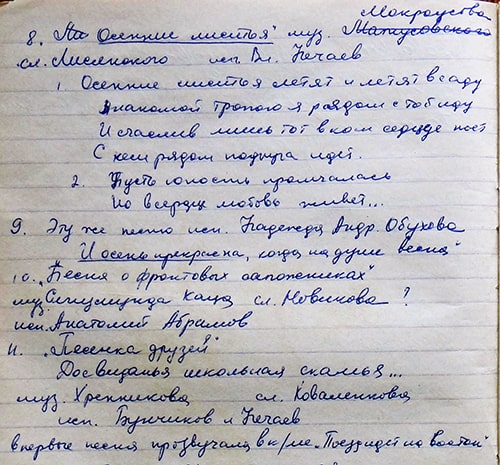 Мокроусова
8. "Осенние листья" муз. Матусовского
сл. Лисянского исп. Вл. Нечаев
1. Осенние листья летят и летят в саду
Знакомой тропою я рядом с тобой иду
И счастлив лишь тот в ком сердце поёт
С кем рядом подруга идёт.
2. Пусть юность промчалась
Но в сердце любовь живёт...
9. Эту же песню исп. Надежда Андр. Обухова
"И осень прекрасна, когда на душе весна"
10. "Песня о фронтовых сапожниках"
муз. Сигизмунда Каца сл. Новикова ?
исп. Анатолий Абрамов
11. "Песенка друзей"
Досвиданья школьная скамья...
муз. Хренникова сл. Коваленкова
исп. Бунчиков и Нечаев
впервые песня прозвучала в к/ме "Поезд идёт на восток"